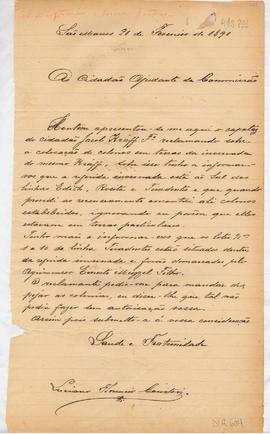 São Marcos 21 de Fevereiro de 1891
Ao Cidadão Ajudante da Commissão
Hontem apresentou-se-me aqui o capataz
do cidadão Jacob Kröff Fº reclamando sobre
a collocação de colonos em terras da invernada
do mesmo Kröff. Sobre isso tenho a informar-
vos que a referida invernada está ao Sul das
linhas Edith, Rosita e Tiradentes e que quando
procedi ao recenseamento encontrei ali colonos
estabelecidos, ignorando eu porém que elles
estavam em terras particulares.
Tenho mais a informar-vos que os lotes
da linha Tiradentes estão situados dentro
da referida invernada e foram demarcados pelo
Agrimensor Filho.
O reclamante pedio-me para mandar des-
pejar os colonos, eu disse-lhe que tal não
podia fazer sem autorização vossa.
Assim pois submetto-a à vossa consideração
Saude e Fraternidade
Luciano Florencio